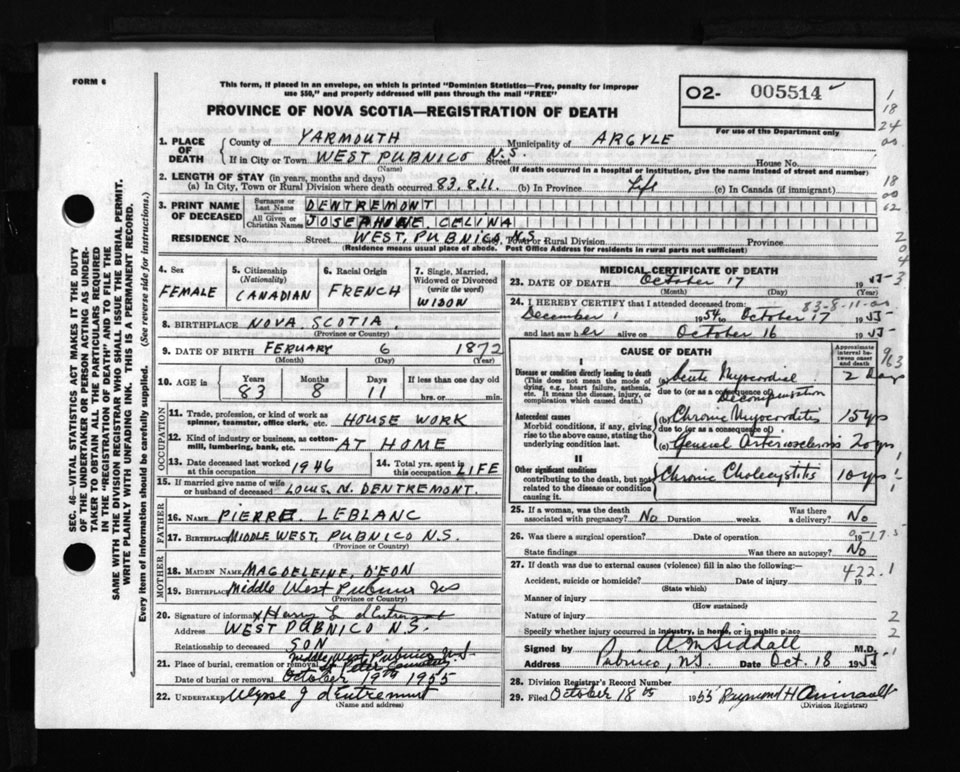 FORM 6
This form, if placed in an envelope, on which is printed "Dominion Statistics—Free, penalty for improper
use $50," and properly addressed will pass through the mail "FREE"
PROVINCE OF NOVA SCOTIA—REGISTRATION OF DEATH
O2- 005514
For use of the Department only
1
18
24
00
18
00
62
2
0
4
3
963
1
1
5
1
2
2
1
SEC. 46—VITAL STATISTICS ACT MAKES IT THE DUTY
OF THE UNDERTAKER OR PERSON ACTING AS UNDER-
TAKER TO OBTAIN ALL THE PARTICULARS REQUIRED
IN THE "REGISTRATION OF DEATH" AND TO FILE THE
SAME WITH THE DIVISION REGISTRAR WHO SHALL ISSUE THE BURIAL PERMIT.
WRITE PLAINLY WITH UNFADING INK. THIS IS A PERMANENT RECORD.
Every item of information should be carefully supplied. (See reverse side for instructions.)
1. PLACE OF DEATH
County of YARMOUTH Municipality of ARGYLE
If in City or Town WEST PUBNICO N.S. Street House No.
(Name) (If death occurred in a hospital or institution, give the name instead of street and number)
2. LENGTH OF STAY (in years, months and days)
(a) In City, Town or Rural Division where death occurred 83.8.11. (b) In Province Life (c) In Canada (if immigrant)
3. PRINT NAME OF DECEASED
Surname or Last Name DENTREMONT
All Given or Christian Names JOSEPHINE CELINA
RESIDENCE No. Street WEST, PUBNICO, N.S. Town or Rural Division Province
(Residence means usual place of abode. Post Office Address for residents in rural parts not sufficient)
4. Sex
FEMALE
5. Citizenship
(Nationality)
CANADIAN
6. Racial Origin
FRENCH
7. Single, Married,
Widowed or Divorced
(write the word)
WIDOW
8. BIRTHPLACE NOVA SCOTIA.
(Province or Country)
9. DATE OF BIRTH FERUARY 6 1872
(Month) (Day) (Year)
10. AGE in Years Months Days If less than one day old
83 8 11 hrs. or min.
OCCUPATION
11. Trade, profession, or kind of work as
spinner, teamster, office clerk, etc. HOUSE WORK
12. Kind of industry or business, as cotton-
mill, lumbering, bank, etc. AT HOME
13. Date deceased last worked
at this occupation 1946
14. Total yrs. spent in
this occupation LIFE
15. If married give name of wife
or husband of deceased LOUIS. N. DENTREMONT.
FATHER
16. NAME PIERRE LEBLANC
17. BIRTHPLACE MIDDLE WEST, PUBNICO N.S.
(Province or Country)
MOTHER
18. MAIDEN NAME MAGDELEINE, D'EON
19. BIRTHPLACE Middle West Pubnico NS
(Province or Country)
20. Signature of informant Harry L d'Entremont
Address WEST PUBNICO N.S.
Relationship to deceased SON
21. Place of burial, cremation or removal Middle West Pubnico N.S.
St. Peter Cemetery
Date of burial or removal October 19th 1955
22. UNDERTAKER Ulysse J d'Entremont
(Name and address)
MEDICAL CERTIFICATE OF DEATH
23. DATE OF DEATH October 17 1955
(Month) (Day) (Year)
83-8-11-00
24. I HEREBY CERTIFY that I attended deceased from:
December 1 1954 to October 17 1955
and last saw her alive on October 16 1955
CAUSE OF DEATH
Approximate interval between onset and death
I
Disease or condition directly leading to death
(This does not mean the mode of dying, e.g., heart failure, asthenia, etc. It means the disease, injury, or complication which caused death.)
(a) Acute Myocardial Decompensation 2 Days
due to (or as a consequence of)
Antecedent causes
Morbid conditions, if any, giving rise to the above cause, stating the underlying condition last.
(b) Chronic Myocarditis 15 yrs
due to (or as a consequence of)
(c) General Arteriosclerosis 20 yrs
II
Other significant conditions
contributing to the death, but not related to the disease or condition causing it.
Chronic Cholecystitis 10 yrs
25. If a woman, was the death
associated with pregnancy? No Duration weeks. Was there a delivery? No
26. Was there a surgical operation? Date of operation 19
State findings Was there an autopsy? No
27. If death was due to external causes (violence) fill in also the following:—
422.1
Accident, suicide or homicide? Date of injury 19
(State which)
Manner of injury
(How sustained)
Nature of injury
Specify whether injury occurred in industry, in home, or in public place
Signed by A.M. Siddall M.D.
Address Pubnico, N.S. Date Oct. 18 1955
28. Division Registrar's Record Number
29. Filed October 18th 1955 Raymond H
(Division Registrar)